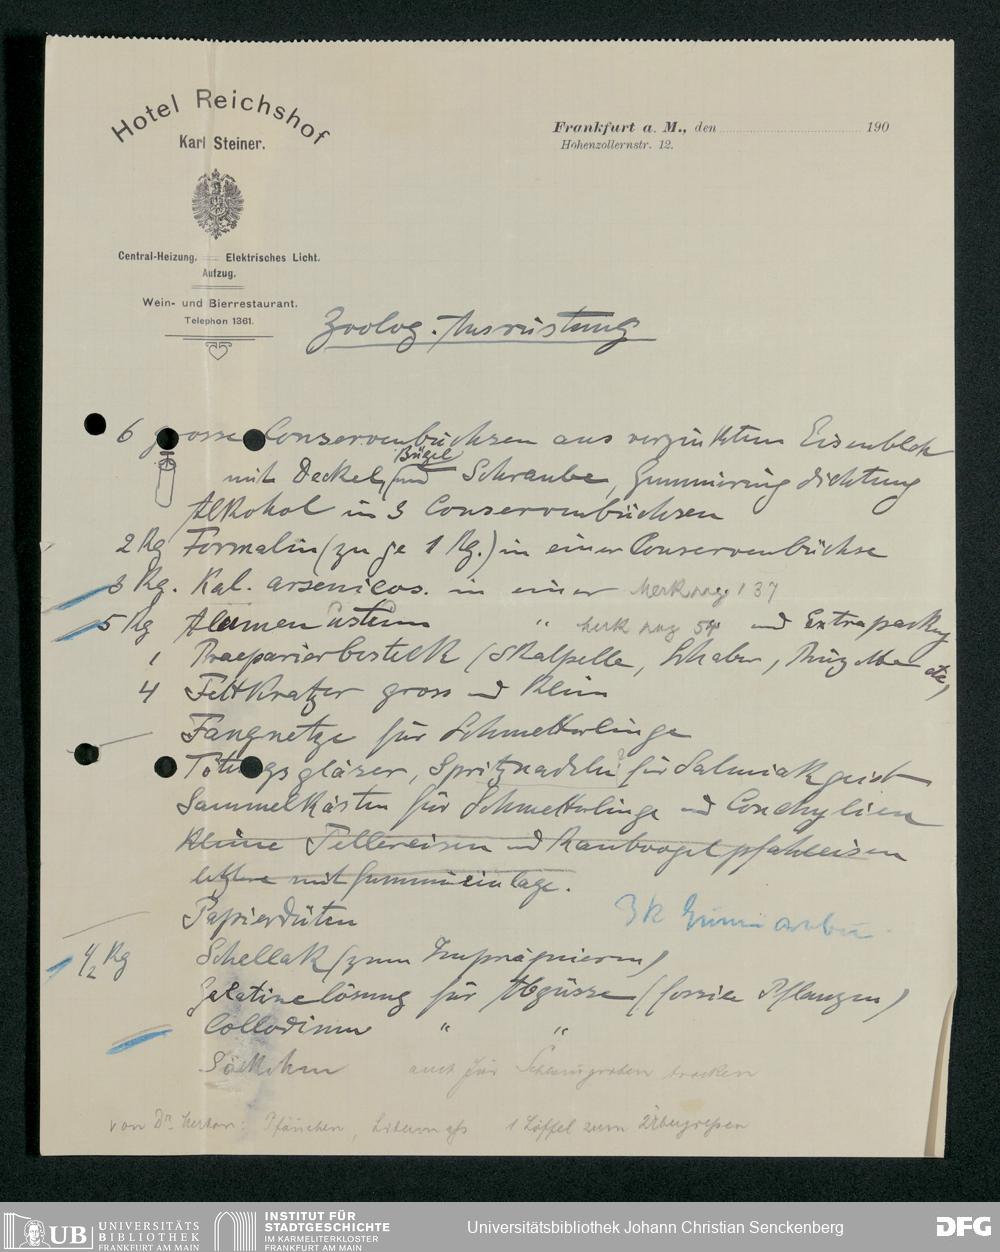 Hotel Reichshof
Karl Steiner.
Central-Heizung. Elektrisches Licht.
Aufzug.
Wein- und Bierrestaurant.
Telephon 1361.
Frankfurt a. M., den 190
Hohenzollernstr. 12.
Zoolog. Ausrüstung
6 grosse Conservenbüchsen aus verzinktem Eisenblech
mit Deckel, Bügel und Schraube, Gummiring dichtung
Alkohol in 3 Conservenbüchsen
2 Kg Formalin (zu je 1 Kg.) in einer Conservenbüchse
3 Kg. Kal. arsenicos. in einer 137
5 Kg Alumen ustum " 54 und Extrapackg
1 Praeparierbesteck (Skalpelle, Schaber, etc)
4 Fettkratzer gross und klein
Fangnetze für Schmetterlinge
Tötungsgläser, Spritznadeln? für Salmiakgeist
Sammelkästen für Schmetterlinge und Conchylien
kleine Tellereisen und Raubvogelpfahleisen
letztere mit Gummieinlage.
Papierdüten 3 K
1/2 Kg Schellak (zum Imprägnieren)
Gelatinelösung für Abgüsse (fossile Pflanzen)
Collodium " "
Säckchen auch für trocken
von Dr. 1 Löffel zum
UB UNIVERSITÄTS
BIBLIOTHEK
FRANKFURT AM MAIN
INSTITUT FÜR
STADTGESCHICHTE
IM KARMELITERKLOSTER
FRANKFURT AM MAIN
Universitätsbibliothek Johann Christian Senckenberg
DFG